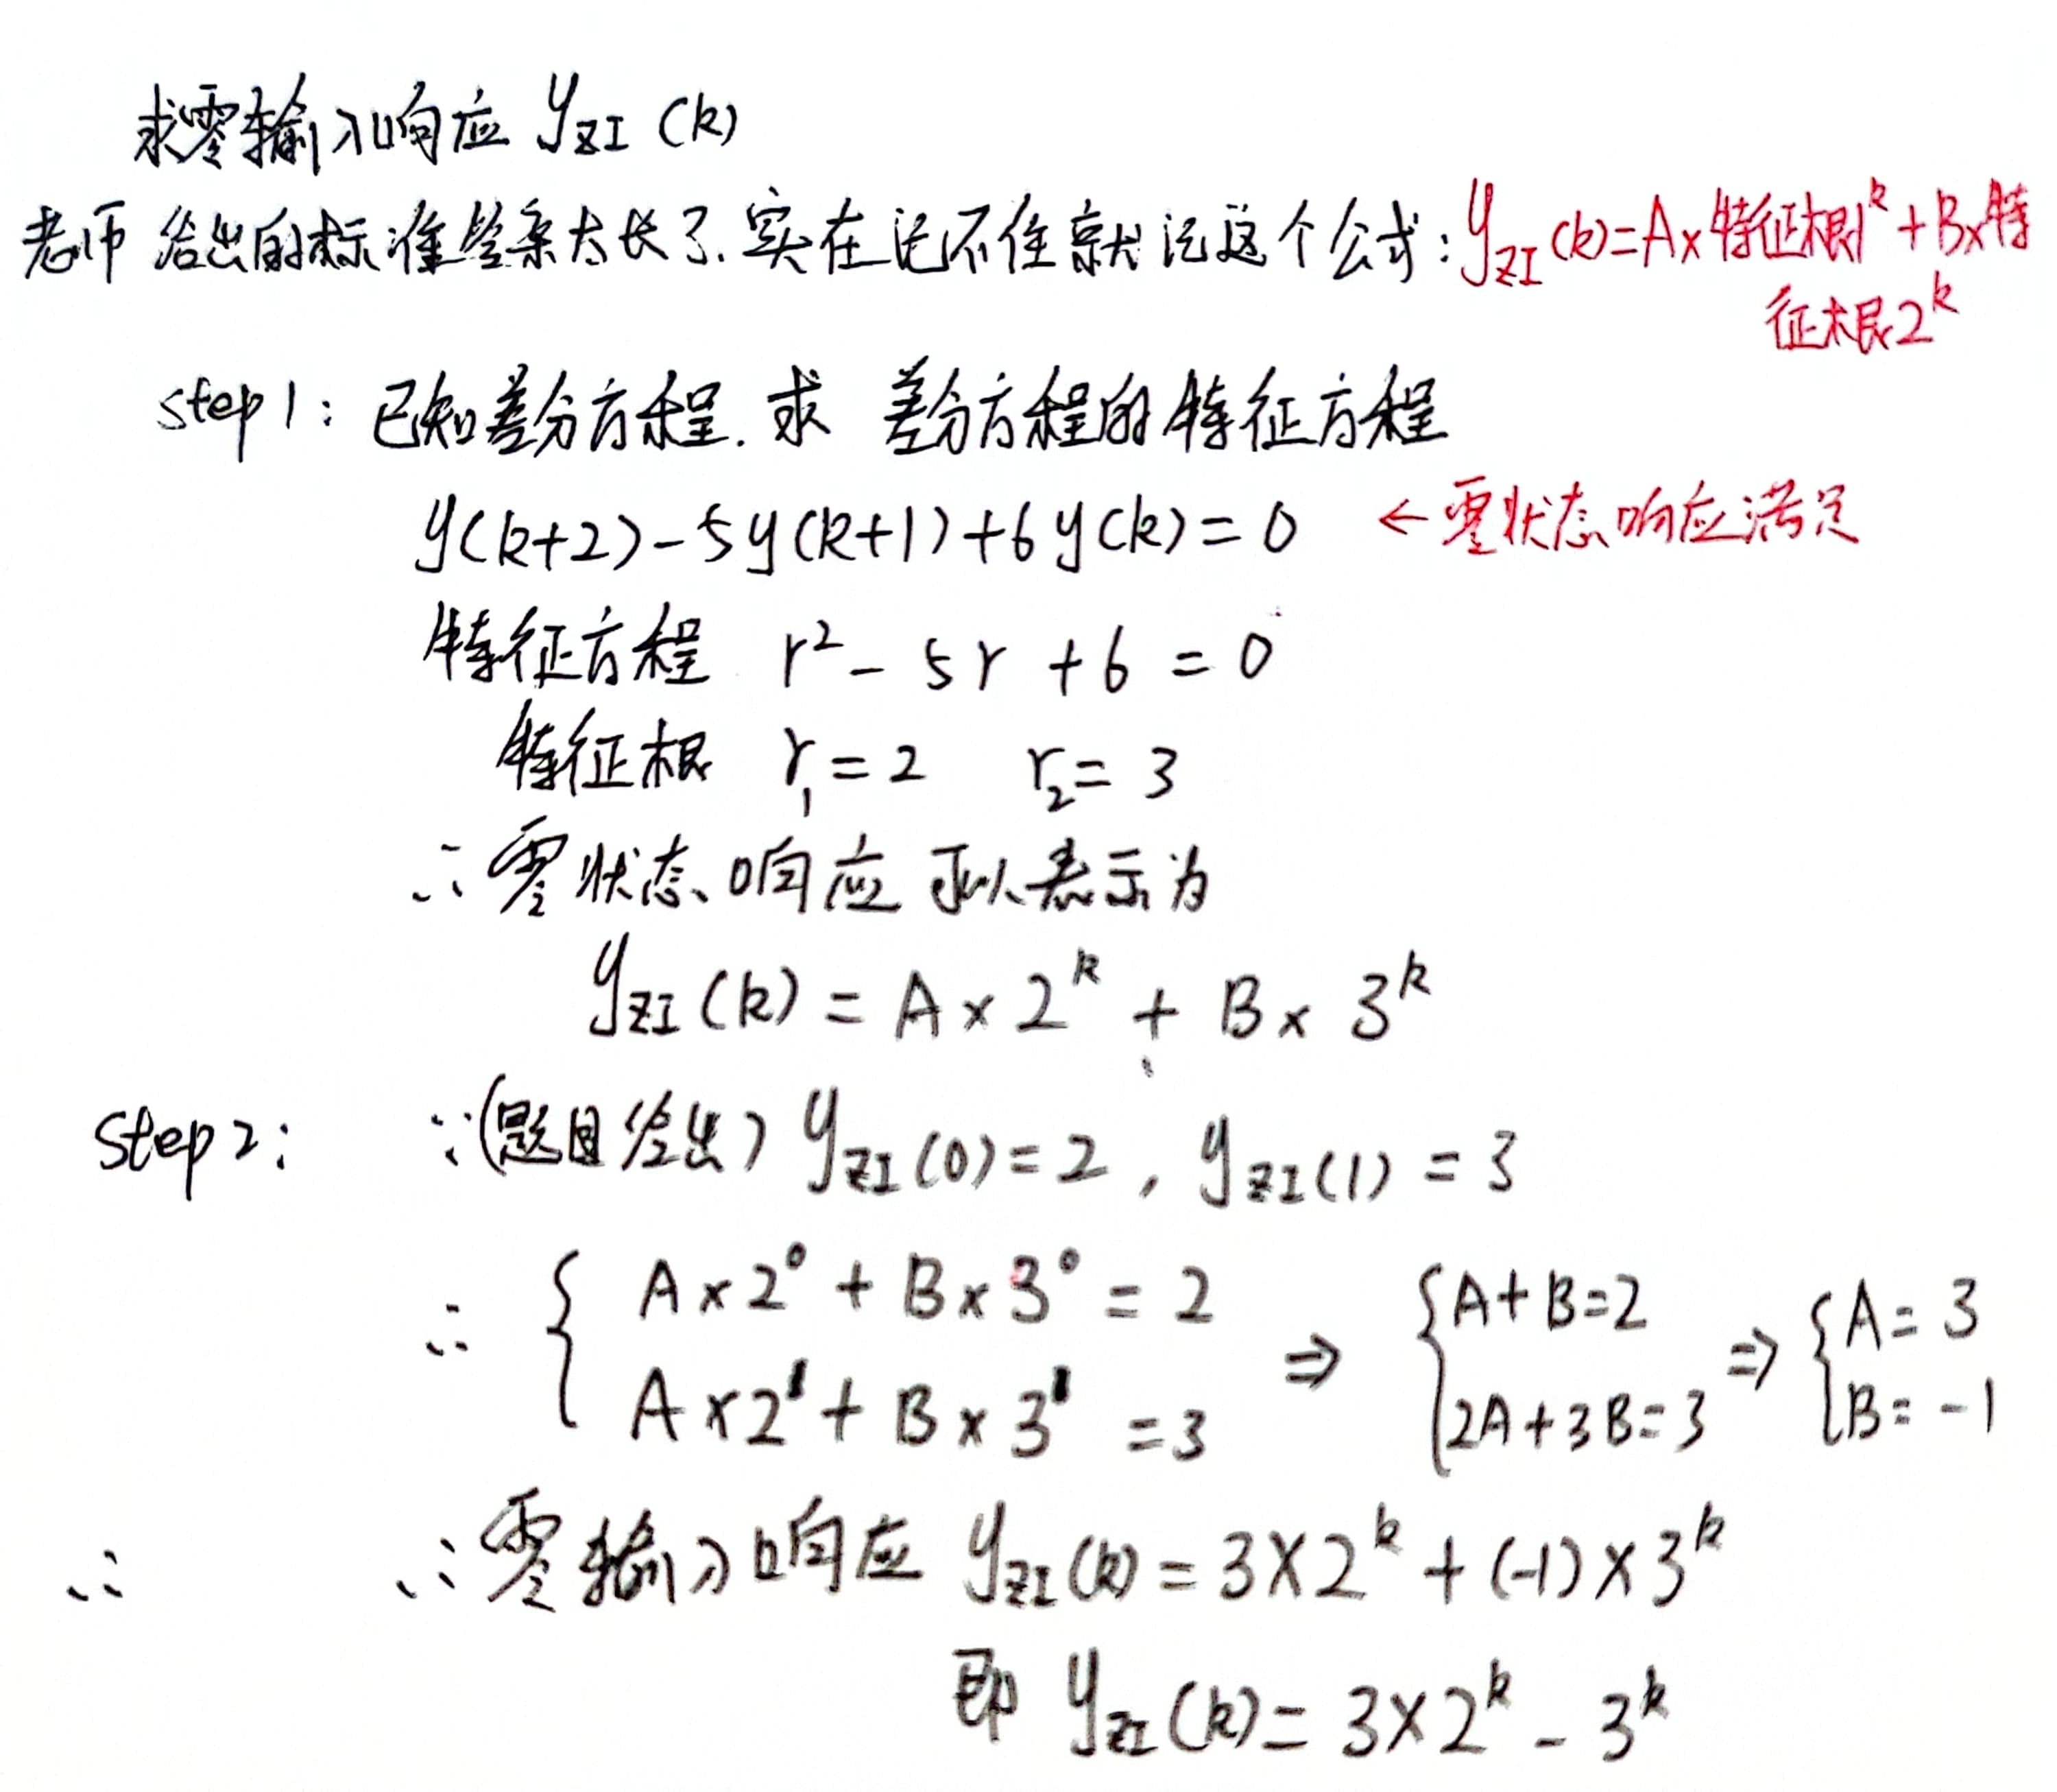 求零输入响应 yZI(k)
老师给出的标准答案太长了.实在记不住就记这个公式: yZI(k)=A×特征根1^k+B×特
征根2^k
step1: 已知差分方程.求 差分方程的特征方程
y(k+2)-5y(k+1)+6y(k)=0 ←零状态响应满足
特征方程 r²-5r+6=0
特征根 r₁=2 r₂=3
∴零状态响应可以表示为
yZI(k)=A×2^k+B×3^k
step2: ∵(题目给出) yZI(0)=2, yZI(1)=3
∴ { A×2⁰+B×3⁰=2 ⇒ { A+B=2 ⇒ { A=3
A×2¹+B×3¹=3 2A+3B=3 B=-1
∴ ∴零输入响应 yZI(k)=3×2^k+(-1)×3^k
即 yZI(k)=3×2^k-3^k